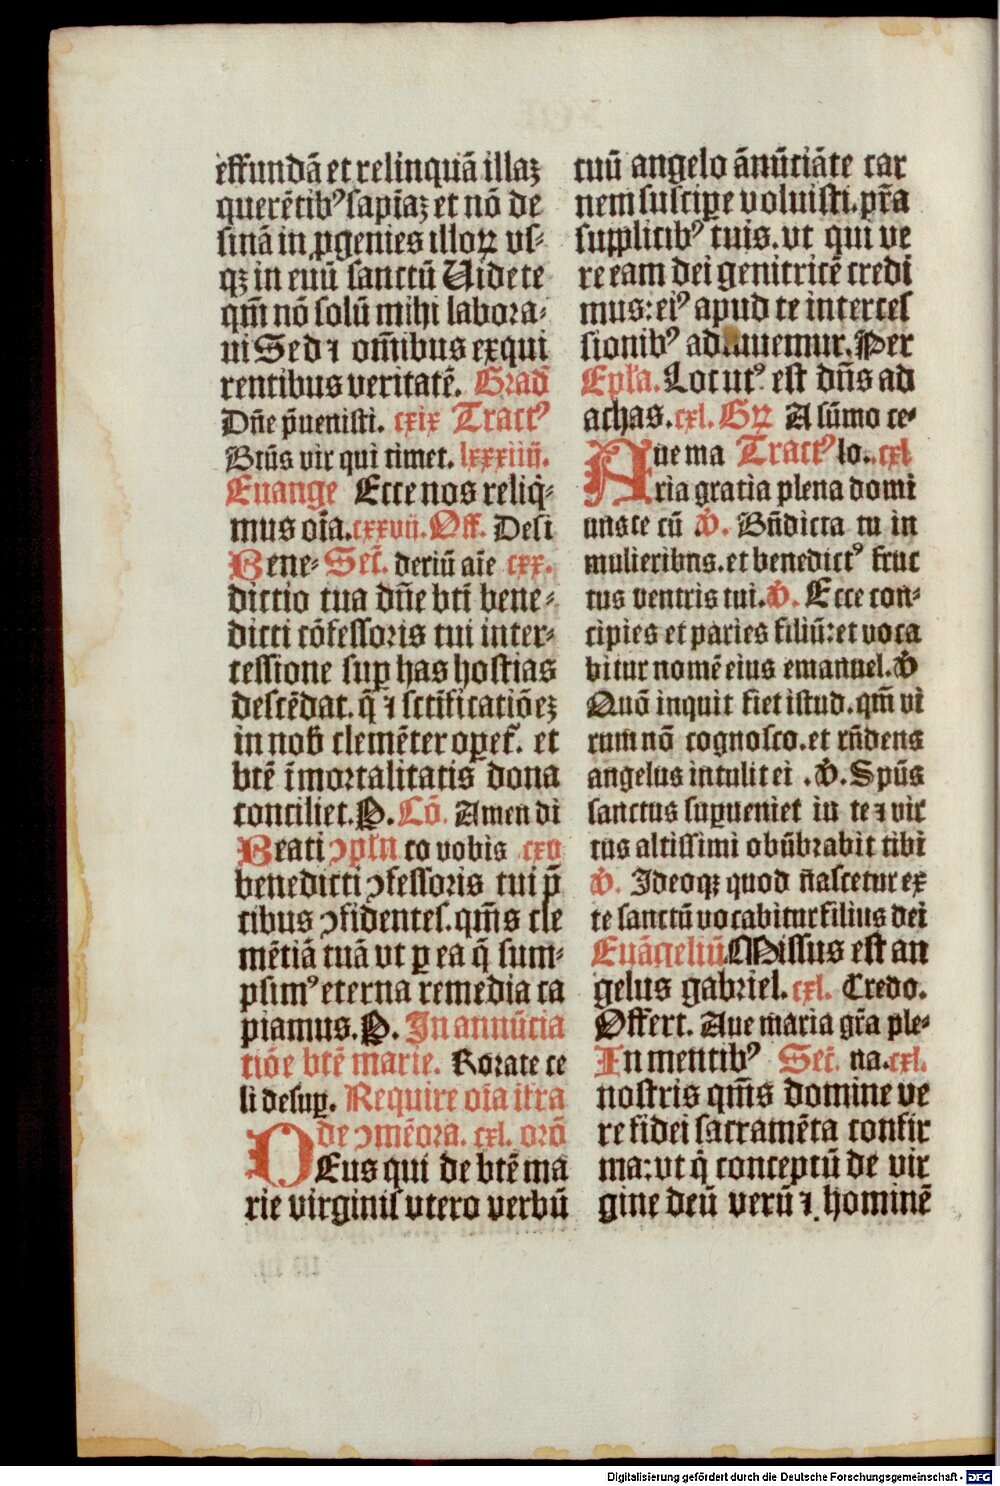 effundā et relinquā illaꝫ
querētibꝰ sapīaꝫ et nō de
sinā in ꝓgenies illoꝝ vs⸗
qꝫ in euū sanctū Uidete
qm̄ nō solū mihi labora⸗
ui Sed ⁊ om̄ibus exqui
rentibus veritatē. Grad̄
Dn̄e p̄uenisti. cxix Tractꝰ
Btūs vir qui timet. lxxxiiii.
Euange Ecce nos reliq̄⸗
mus oīa. cxxvii. Off. Desi
Bene⸗ Sec̄. deriū aīe cxx.
dictio tua dn̄e btī bene⸗
dicti cōfessoris tui inter⸗
cessione suꝑ has hostias
descēdat. q̄ ⁊ sctīficatiōeꝫ
in nob̄ clemēter oꝑet̄. et
btē īmortalitatis dona
conciliet. P. Cō. Amen di
Beati ↄpl̄n co vobis cxv
benedicti ↄfessoris tui p̄
cibus ↄfidentes. qm̄s cle
mētiā tuā vt ꝑ ea q̄ sum⸗
psimꝰ eterna remedia ca
piamus. P. In annūcia
tiōe btē marie. Rorate ce
li desuꝑ. Require oīa īfra
de ↄmēora. cxl. orō
DEus qui de btē ma
rie virginis vtero verbū
tuū angelo ānūciāte car
nem suscipe voluisti. pr̄a
supplicibꝰ tuis. vt qui ve
re eam dei genitricē credi
mus: eiꝰ apud te interces
sionibꝰ adiuuemur. Per
Epl̄a. Locutꝰ est dn̄s ad
achas. cxl. Gꝝ A sūmo ce⸗
Aue ma Tractꝰ lo. cxl
ria gratia plena domi
unste cū ꝟ. Bn̄dicta tu in
mulieribns. et benedictꝰ fruc
tus ventris tui. ꝟ. Ecce con⸗
cipies et paries filiū: et voca
bitur nomē eius emanuel. ꝟ
Quō inquit fiet istud. qm̄ vi
rum nō cognosco. et rn̄dens
angelus intulit ei . ꝟ. Spūs
sanctus suꝑueniet in te ⁊ vir
tus altissimi obūbrabit tibi
ꝟ. Ideoqꝫ quod n̄ascetur ex
te sanctū vocabitur filius dei
Euāgeliū. Missus est an
gelus gabriel. cxl. Credo.
Offert. Aue maria gr̄a ple⸗
In mentibꝰ Sec̄. na. cxl.
nostris qm̄s domine ve
re fidei sacramēta confir
ma: vt q̄ conceptū de vir
gine deū verū ⁊ hominē
Digitalisierung gefördert durch die Deutsche Forschungsgemeinschaft - DFG